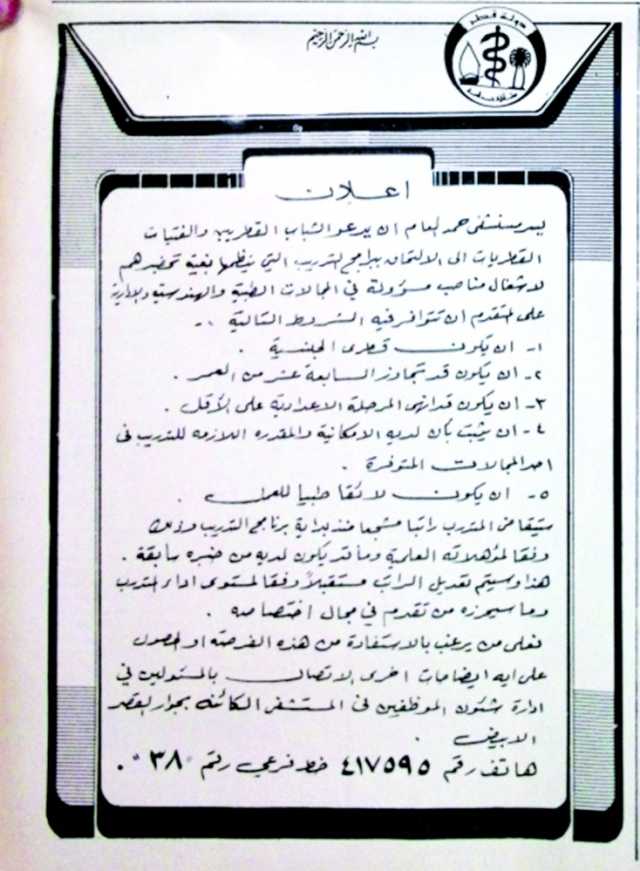 بسم الله الرحمن الرحيم
دولة قطر
اعلان
يسر مستشفى حمد العام ان يدعو الشباب القطريين والفتيات
القطريات الى الالتحاق ببرامج التدريب التي ينظمها بغية تحضيرهم
لاشغال مناصب مسؤولة في المجالات الطبية والهندسية والادارية
على المتقدم ان تتوافر فيه الشروط التالية :-
١- ان يكون قطرى الجنسية .
٢- ان يكون قد تجاوز السابعة عشر من العمر .
٣- ان يكون قد انهى المرحلة الاعدادية على الأقل .
٤- ان يثبت بأن لديه الامكانية والمقدره اللازمه للتدريب في
احد المجالات المتوفرة .
٥- ان يكون لائقا طبيا للعمل .
سيتقاضى المتدرب راتبا مشجعا منذ بداية برنامج التدريب وذلك
وفقا لمؤهلاته العلمية وما قد يكون لديه من خبره سابقة .
هذا وسيتم تعديل الراتب مستقبلاً وفقا لمستوى اداء المتدرب
وما سيحرزه من تقدم في مجال اختصاصه .
فعلى من يرغب بالاستفادة من هذه الفرصة او الحصول
على ايه ايضاحات اخرى الاتصال بالمسئولين في
ادارة شئون الموظفين في المستشفى الكائنه بجوار القصر
الابيض .
هاتف رقم ٤١٧٥٩٥ خط فرعي رقم "٣٨" .